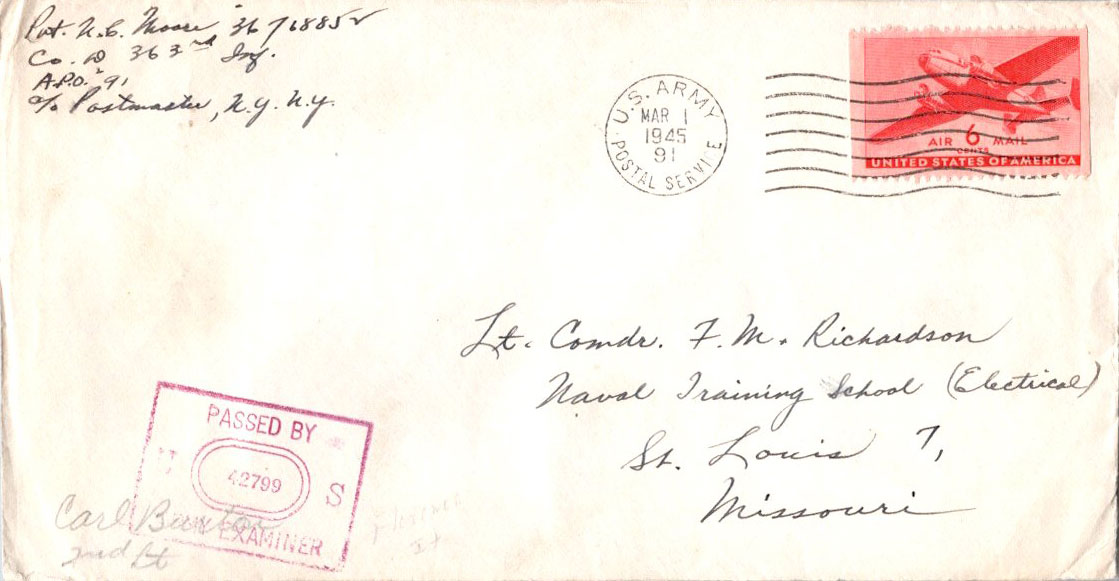 Pvt. N.C. Moore 36718852
Co. D 363rd Inf.
A.P.O. 91
c/o Postmaster, N.Y. N.Y.
U.S. ARMY
POSTAL SERVICE
MAR 1
1945
91
AIR 6 MAIL
CENTS
UNITED STATES OF AMERICA
Lt. Comdr. F. M. Richardson
Naval Training School (Electrical)
St. Louis 7,
Missouri
PASSED BY
42799
S
EXAMINER
Carl
2nd Lt